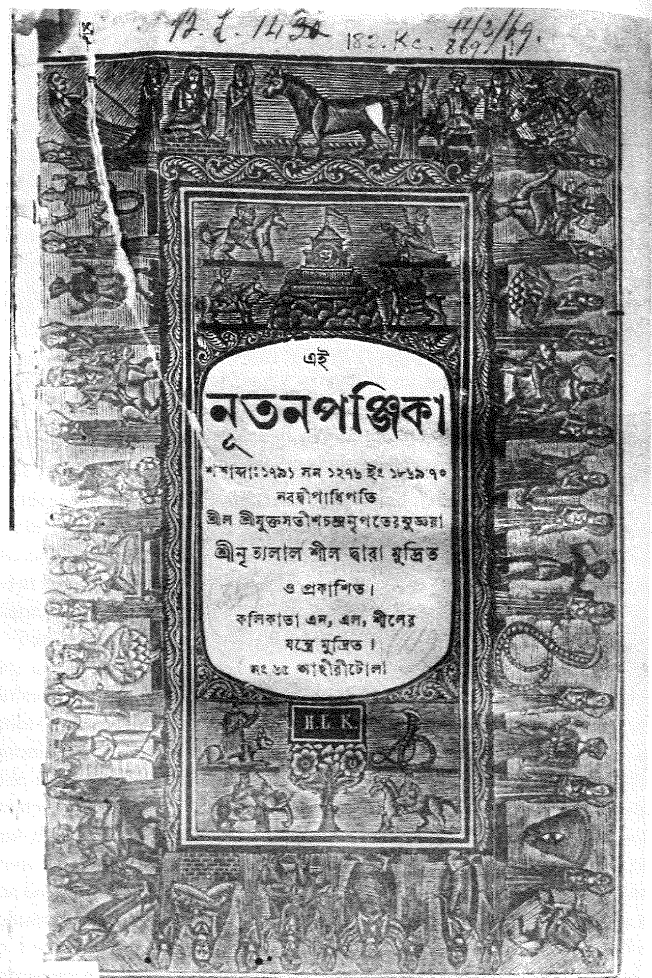 B. L. 1430
182. Kc. 869
11/2/69.
এই
নূতনপঞ্জিকা
শকাব্দাঃ ১৭৯১ সন ১২৭৬ ইং ১৮৬৯।৭০
নবদ্বীপাধিপতি
শ্রীল শ্রীযুক্তসতীশচন্দ্রনৃপতেরনুজ্ঞয়া
শ্রীনৃত্যলাল শীল দ্বারা মুদ্রিত
ও প্রকাশিত।
কলিকাতা এন, এল, শীলের
যন্ত্রে মুদ্রিত।
নং ৬৫ আহীরীটোলা